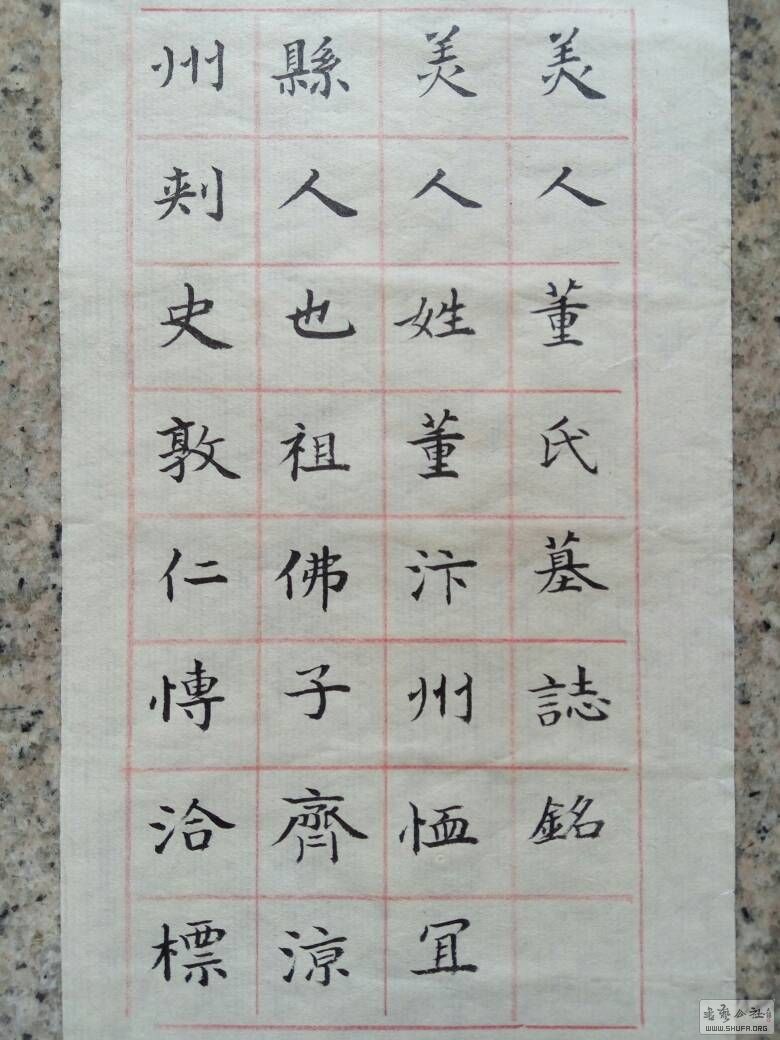 美人董氏墓誌銘
美人姓董汴州恤冝
縣人也祖佛子齊涼
州刾史敦仁愽洽標
WWW.SHUFA.ORG